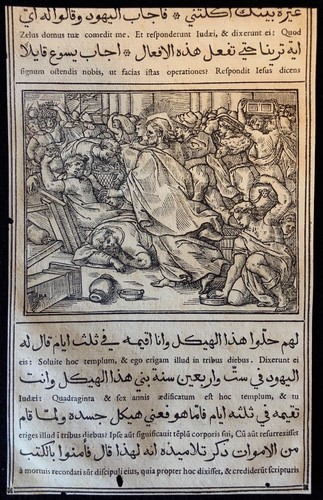 غيرة بيتك اكلتني * فاجاب اليهود وقالوا له اي
Zelus domus tuæ comedit me. Et responderunt Iudæi, & dixerunt ei: Quod
اية ترينا حتي تفعل هذه الافعال * اجاب يسوع قايلا
signum ostendis nobis, ut facias istas operationes? Respondit Iesus dicens
لهم حلوا هذا الهيكل وانا اقيمه في ثلثة ايام قال له
eis: Soluite hoc templum, & ego erigam illud in tribus diebus. Dixerunt ei
اليهود في ست واربعين سنة بني هذا الهيكل وانت
Iudæi: Quadraginta & sex annis ædificatum est hoc templum, & tu
تقيمه في ثلثة ايام فاما هو فعني هيكل جسده ولما قام
eriges illud ī tribus diebus? Ipse aũt significauit tēplũ corporis sui, Cũ aũt resurrexisset
من الاموات ذكر تلاميذه انه لهذا قال فامنوا بالكتب
à mortuis recordati sũt discipuli eius, quia propter hoc dixisset, & crediderũt scripturis